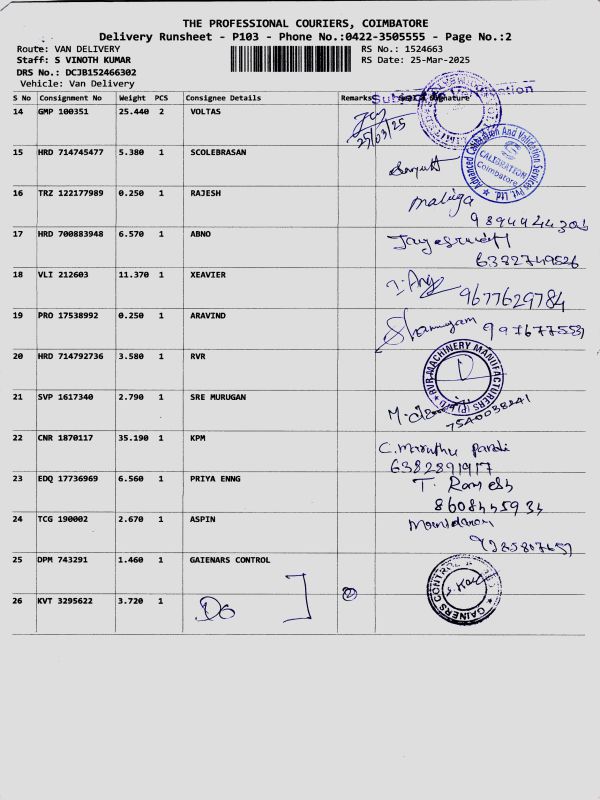 THE PROFESSIONAL COURIERS, COIMBATORE
Delivery Runsheet - P103 - Phone No.:0422-3505555 - Page No.:2
Route: VAN DELIVERY RS No.: 1524663
Staff: S VINOTH KUMAR RS Date: 25-Mar-2025
DRS No.: DCJB152466302
Vehicle: Van Delivery
S No Consignment No Weight PCS Consignee Details Remarks Signature
14 GMP 100351 25.440 2 VOLTAS
25/03/25
15 HRD 714745477 5.380 1 SCOLEBRASAN
Advanced Calibration And Validation Services Pvt. Ltd.
CALIBRATION
Coimbatore
16 TRZ 122177989 0.250 1 RAJESH
17 HRD 700883948 6.570 1 ABNO
6382749526
18 VLI 212603 11.370 1 XEAVIER
9677629784
19 PRO 17538992 0.250 1 ARAVIND
Shanmugam
20 HRD 714792736 3.580 1 RVR
RVR MACHINERY MANUFACTURERS (P) LTD
21 SVP 1617340 2.790 1 SRE MURUGAN
22 CNR 1870117 35.190 1 KPM
6382891917
23 EDQ 17736969 6.560 1 PRIYA ENNG
T. Ramesh
24 TCG 190002 2.670 1 ASPIN
25 DPM 743291 1.460 1 GAIENARS CONTROL
GAINERS CONTROL
26 KVT 3295622 3.720 1 Do
2